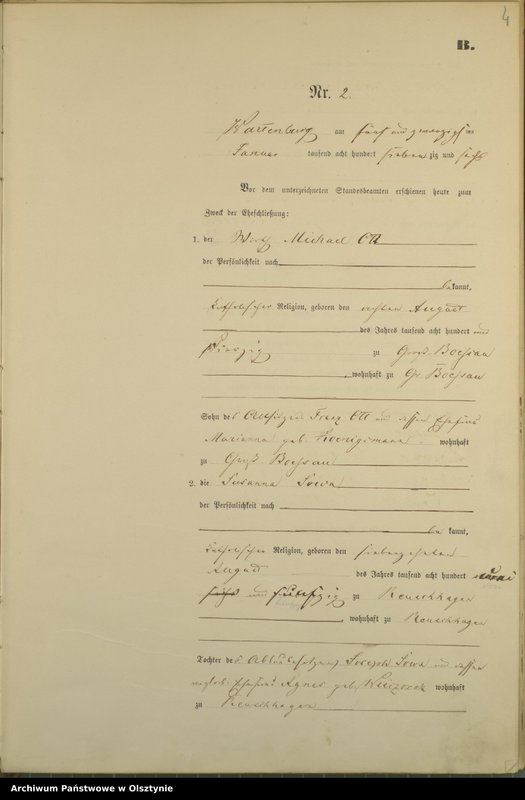 4
B.
Nr. 2.
Wartenburg am fünf und zwanzigsten
Januar tausend acht hundert sieben zig und sechs
Vor dem unterzeichneten Standesbeamten erschienen heute zum
Zweck der Eheschließung:
1. der Wirth Michael Ott
der Persönlichkeit nach
bekannt,
katholischer Religion, geboren den achten August
des Jahres tausend acht hundert
vierzig zu Groß Boessau
, wohnhaft zu Gr. Boessau
Sohn des Altsitzers Franz Ott und dessen Ehefrau
Marianna geb. wohnhaft
zu Groß Boessau
2. die Susanna Sowa
der Persönlichkeit nach
be kannt,
katholischer Religion, geboren den siebenzehnten
August des Jahres tausend acht hundert
und fünfzig zu Reuschhagen
, wohnhaft zu Reuschhagen
Tochter des Joseph Sowa und dessen
Agnes geb. wohnhaft
zu Reuschhagen
Archiwum Państwowe w Olsztynie